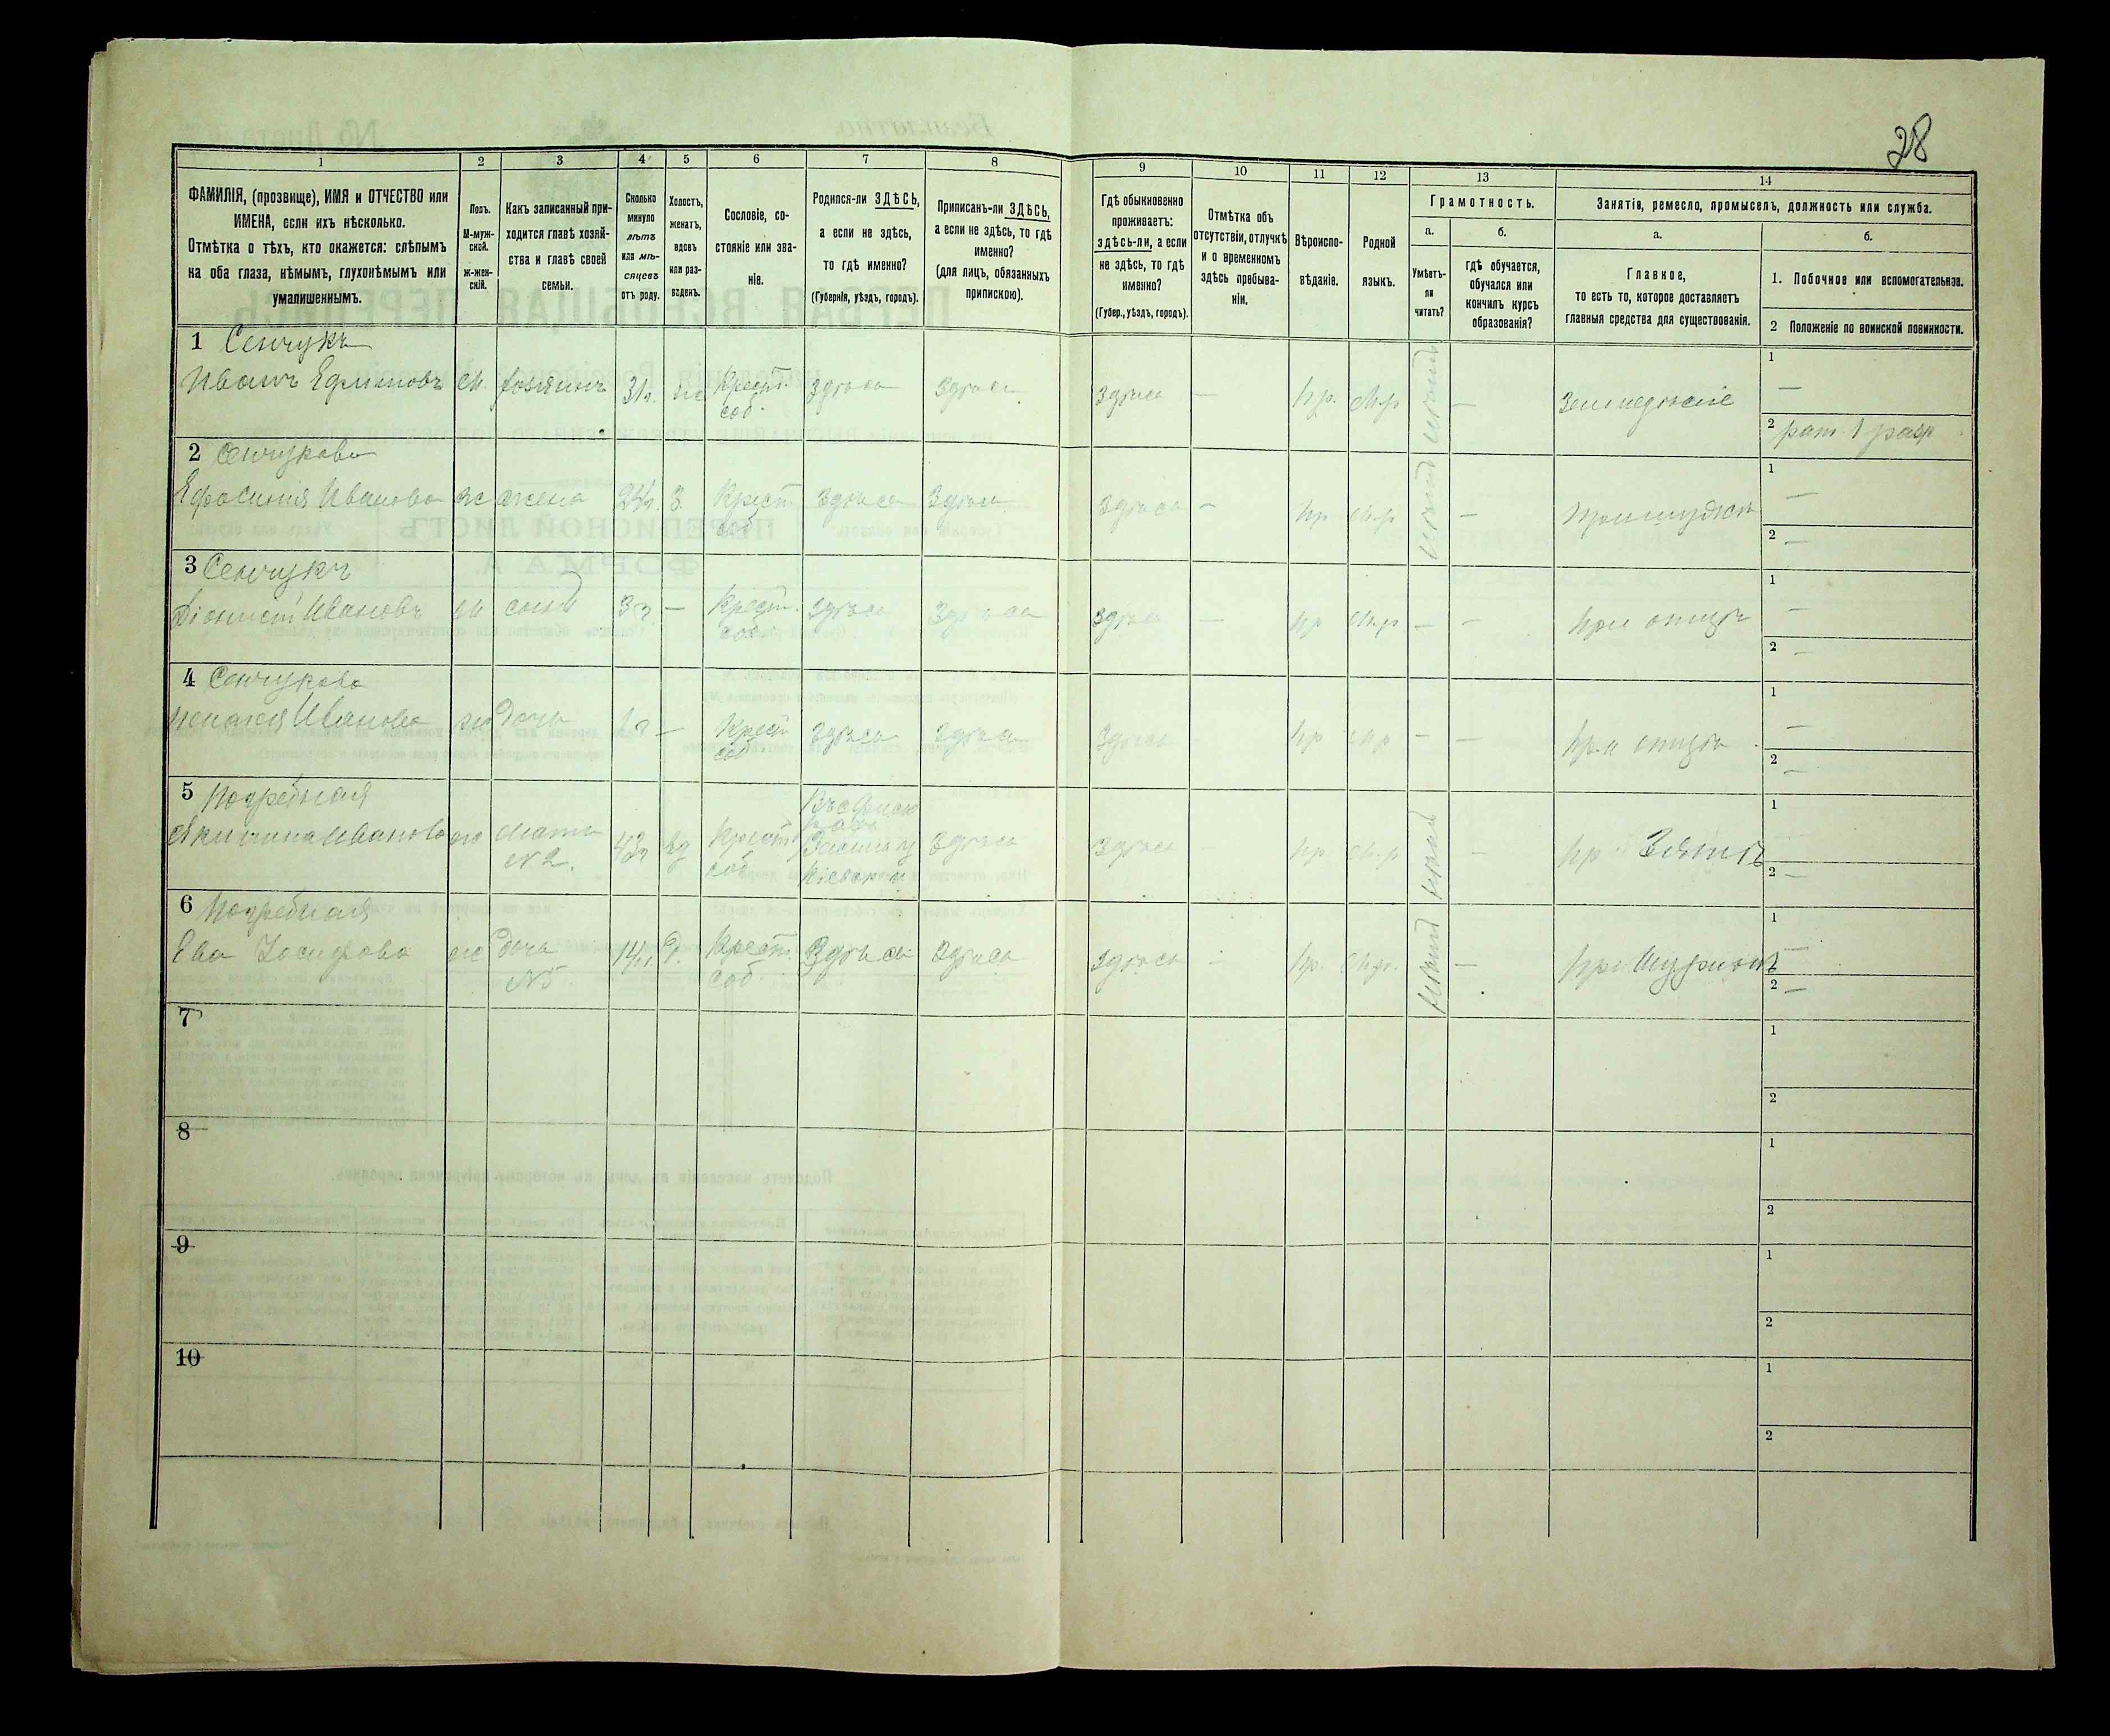 28
1 2 3 4 5 6 7 8 9 10 11 12 13 14
ФАМИЛІЯ, (прозвище), ИМЯ и ОТЧЕСТВО или
ИМЕНА, если ихъ нѣсколько.
Отмѣтка о тѣхъ, кто окажется: слѣпымъ
на оба глаза, нѣмымъ, глухонѣмымъ или
умалишеннымъ.
Полъ.
М-муж-
ской.
Ж-жен-
скій.
Какъ записанный при-
ходится главѣ хозяй-
ства и главѣ своей
семьи.
Сколько
минуло
лѣтъ
или мѣ-
сяцевъ
отъ роду.
Холостъ,
женатъ,
вдовъ
или раз-
веденъ.
Сословіе, со-
стояніе или зва-
ніе.
Родился-ли ЗДѢСЬ,
а если не здѣсь,
то гдѣ именно?
(Губернія, уѣздъ, городъ).
Приписанъ-ли ЗДѢСЬ,
а если не здѣсь, то гдѣ
именно?
(для лицъ, обязанныхъ
припискою).
Гдѣ обыкновенно
проживаетъ:
здѣсь-ли, а если
не здѣсь, то гдѣ
именно?
(Губер., уѣздъ, городъ).
Отмѣтка объ
отсутствіи, отлучкѣ
и о временномъ
здѣсь пребыва-
ніи.
Вѣроиспо-
вѣданіе.
Родной
языкъ.
Грамотность.
а.
Умѣетъ-
ли
читать?
б.
гдѣ обучается,
обучался или
кончилъ курсъ
образованія?
Занятія, ремесло, промыселъ, должность или служба.
а.
Главное,
то есть то, которое доставляетъ
главныя средства для существованія.
б.
1. Побочное или вспомогательное.
2 Положеніе по воинской повинности.
1 Сенчукъ
Иванъ Ефимовъ м. хозяинъ 31 л. ж Крест. здѣсь здѣсь здѣсь — пр. мр — Земледѣліе 1 —
соб. 2 рат. 1 разр
2 Сенчукова
Ефросинія Иванова ж жена 24 л. З Крест здѣсь здѣсь здѣсь — пр мр — 1 —
соб 2 —
3 Сенчукъ
Діонисій Ивановъ м сынъ 3 г — Крест. здѣсь здѣсь здѣсь — пр мр — — При отцѣ 1 —
соб 2 —
4 Сенчукова
Иванова ж дочь 1 г — Крест здѣсь здѣсь здѣсь пр мр — — при отцѣ 1 —
соб 2 —
5 Погребная
Акилина Иванова ж мать вд Крест здѣсь здѣсь — пр мр — пр Зятѣ 1
№ 2. соб Кіевской 2 —
6 Погребная
Ева Іосифова ж дочь 14 л. Д. Крест. Здѣсь здѣсь здѣсь — пр. мр. — 1 —
№ 5 соб. 2 —
7 1
2
8 1
2
9 1
2
10 1
2